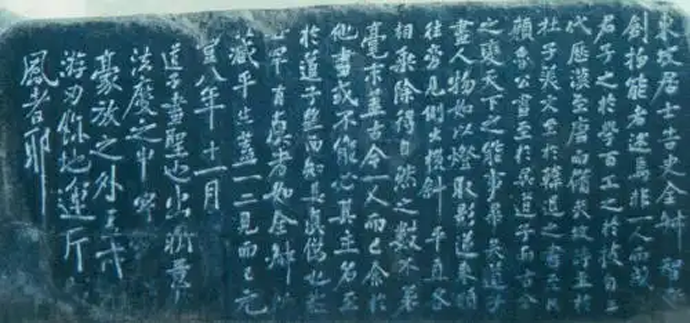 東坡居士告史全叔智者
創物能者述焉非一人而成
君子之於學百工之於技自三
代歷漢至唐而備矣故詩至於
杜子美文至於韓退之書至於
顏魯公畫至於吳道子而古今
之變天下之能事畢矣道子
畫人物如以燈取影逆來順
往旁見側出橫斜平直各
相乘除得自然之數不差
毫末蓋古今一人而已余於
他畫或不能必其主名至
於道子望而知其真偽也然
世罕有真者如全叔所
藏平生蓋一二見而已元
豐八年十一月
道子畫聖也出新意
法度之中寄
豪放之外
游刃餘地運斤
風者耶